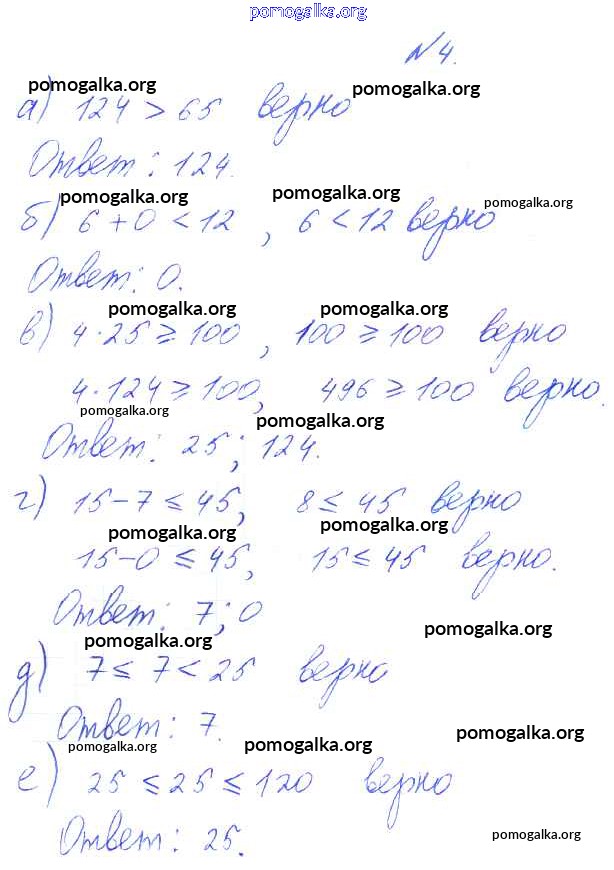 pomogalka.org
№4.
pomogalka.org pomogalka.org
а) 124 > 65 верно
Ответ: 124.
pomogalka.org pomogalka.org pomogalka.org
б) 6 + 0 < 12 , 6 < 12 верно
Ответ: 0.
pomogalka.org pomogalka.org
в) 4 · 25 ⩾ 100 , 100 ⩾ 100 верно
4 · 124 ⩾ 100, 496 ⩾ 100 верно.
pomogalka.org pomogalka.org
Ответ: 25; 124.
г) 15 − 7 ⩽ 45, 8 ⩽ 45 верно
pomogalka.org pomogalka.org
15 − 0 ⩽ 45, 15 ⩽ 45 верно.
Ответ: 7; 0
pomogalka.org pomogalka.org
д) 7 ⩽ 7 < 25 верно
Ответ: 7.
pomogalka.org pomogalka.org pomogalka.org
е) 25 ⩽ 25 ⩽ 120 верно
Ответ: 25.
pomogalka.org